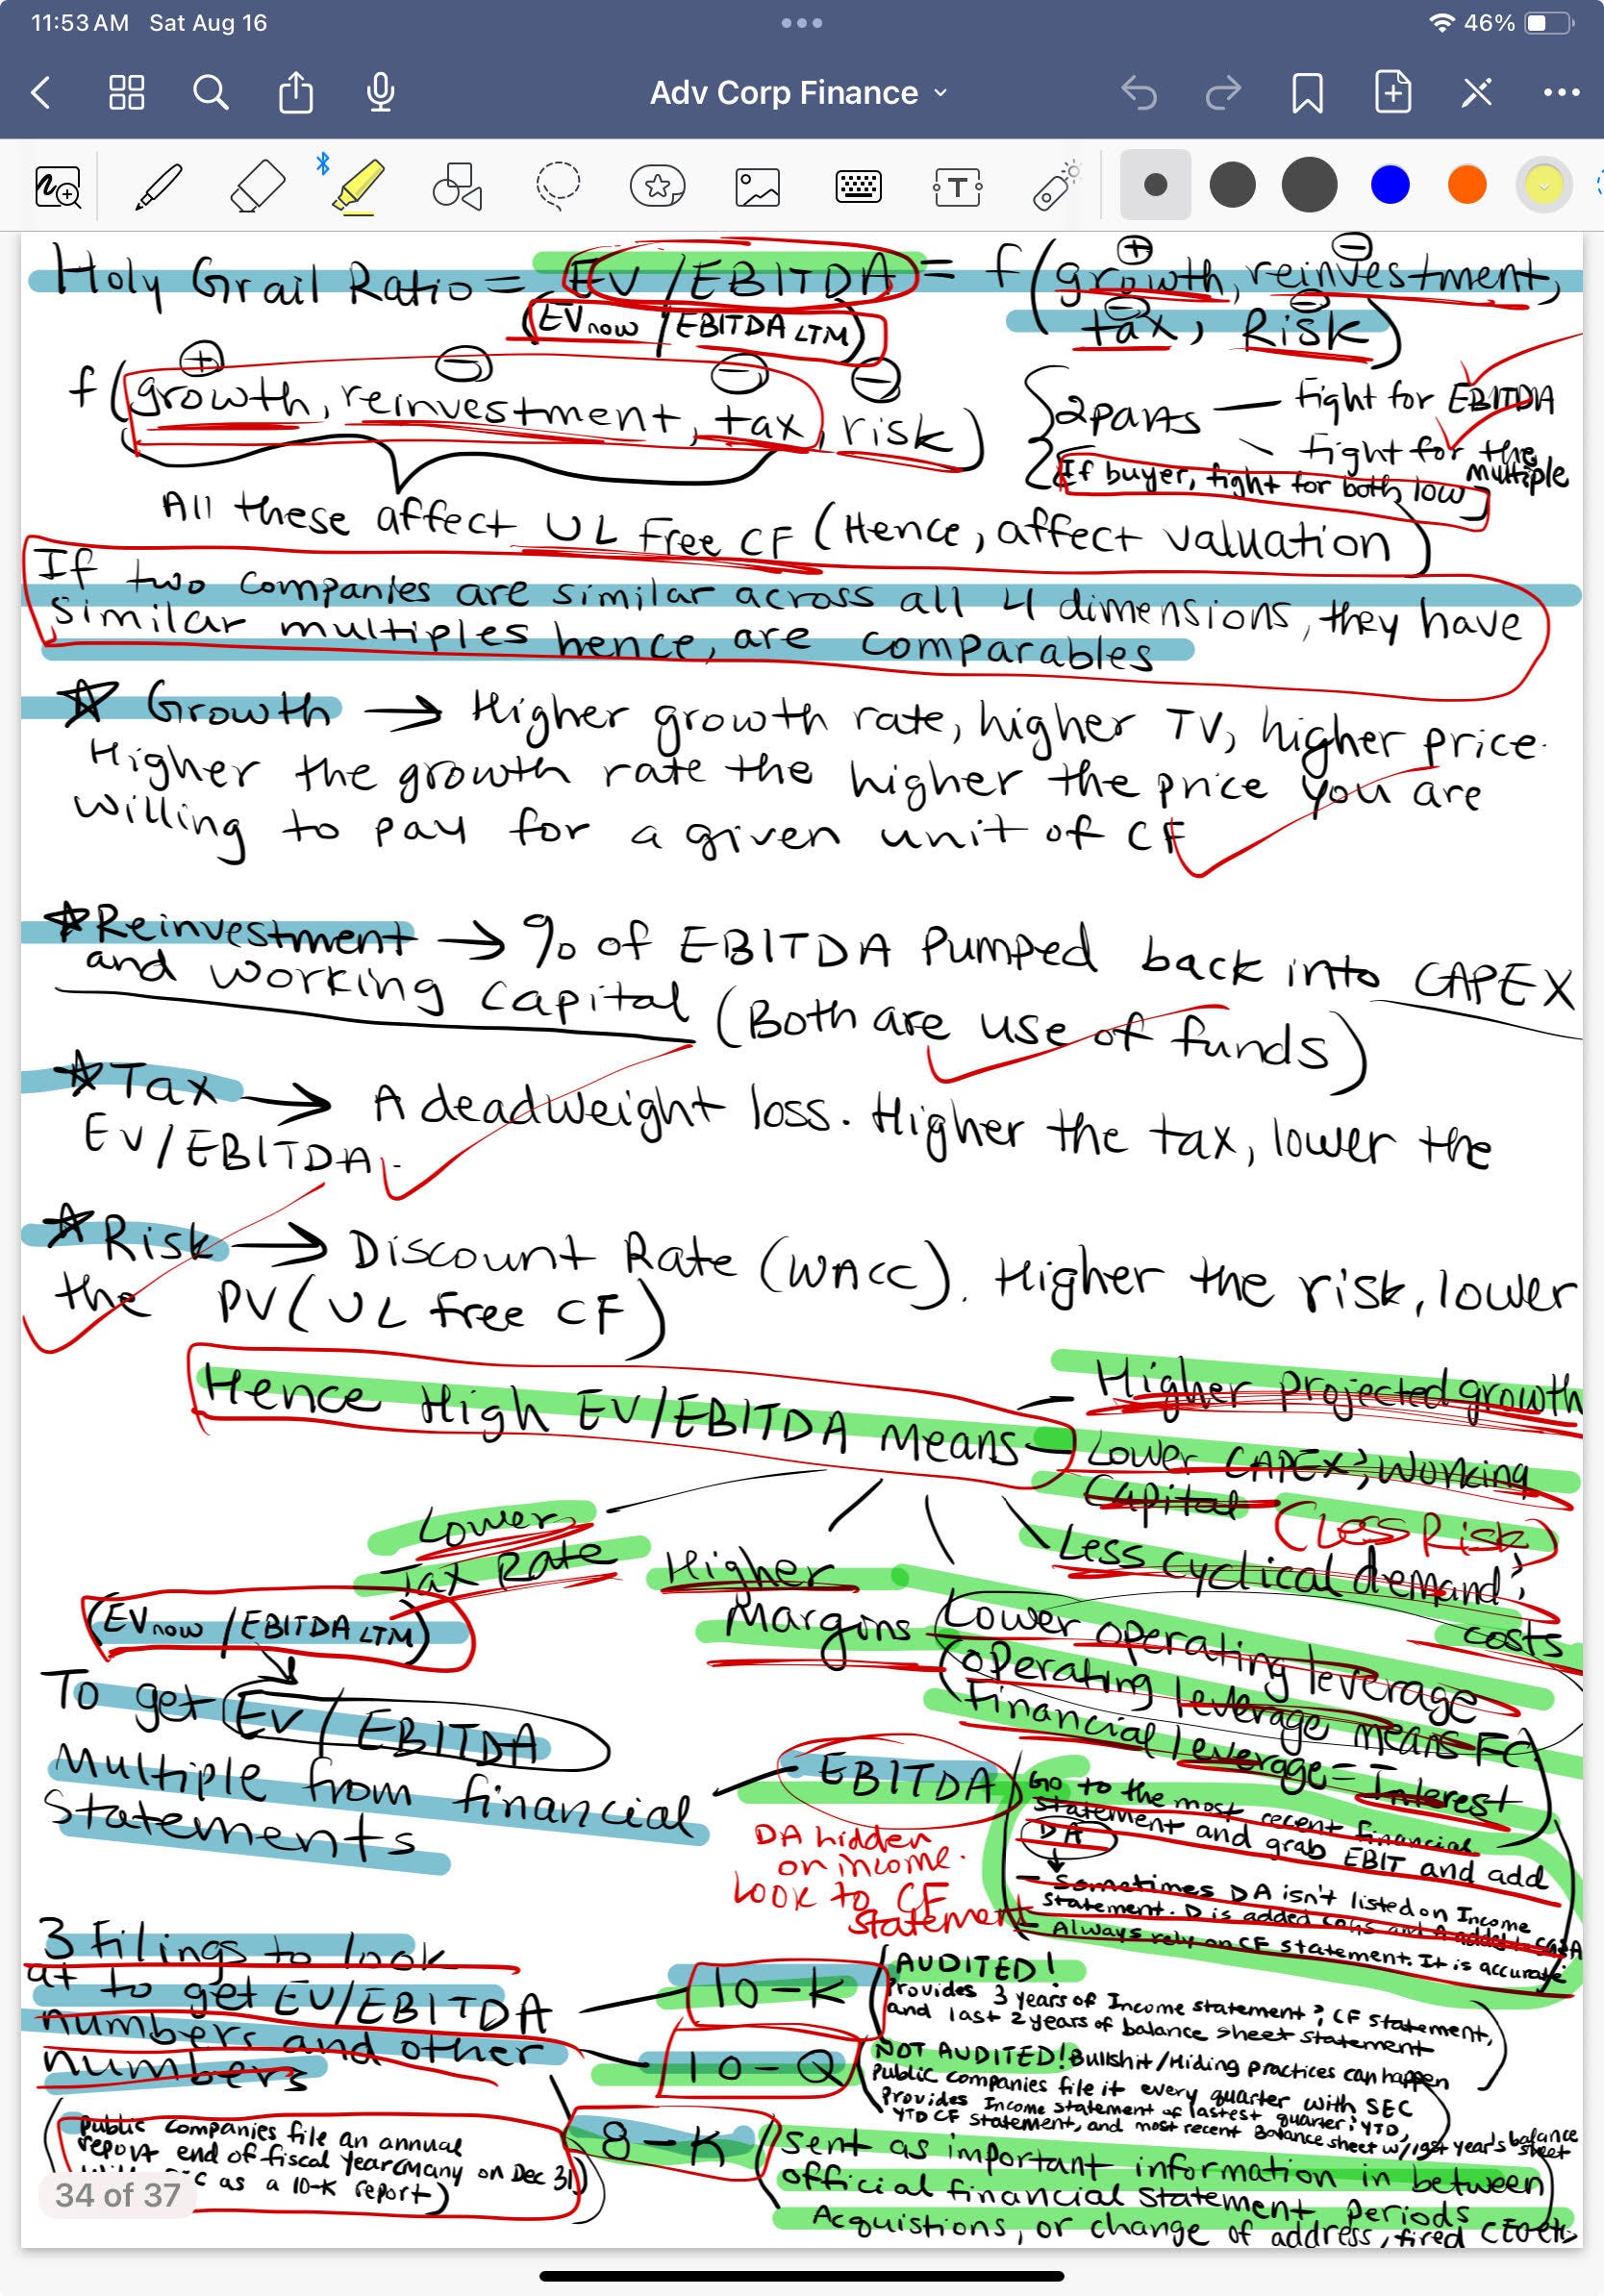 11:53 AM Sat Aug 16
46%
Adv Corp Finance
Holy Grail Ratio = EV/EBITDA = f(growth, reinvestment,
(EV now / EBITDA LTM)
tax, Risk)
f(growth, reinvestment, tax, risk)
2 parts — fight for EBITDA
fight for the multiple
If buyer, fight for both low
All these affect UL Free CF (Hence, affect valuation)
If two companies are similar across all 4 dimensions, they have
similar multiples hence, are comparables
Growth → Higher growth rate, higher TV, higher price.
Higher the growth rate the higher the price you are
willing to pay for a given unit of CF
Reinvestment → % of EBITDA Pumped back into CAPEX
and working capital (Both are use of funds)
Tax → A deadweight loss. Higher the tax, lower the
EV/EBITDA.
Risk → Discount Rate (WACC). Higher the risk, lower
the PV(UL free CF)
Hence High EV/EBITDA Means
— Higher projected growth
— Lower CAPEX; Working
Capital (Less Risk)
Less cyclical demand;
costs
Lower
Tax Rate
Higher
Margins
Lower operating leverage
(operating leverage means FC)
Financial leverage = Interest
(EV now / EBITDA LTM)
To get EV/EBITDA
Multiple from financial
Statements
EBITDA
DA hidden
on income.
Look to CF
statement
Go to the most recent financial
statement and grab EBIT and add
DA
- Sometimes DA isn't listed on Income
statement. D is added COGS and A added to
- Always rely on CF statement. It is accurate
3 Filings to look
at to get EV/EBITDA
numbers and other
numbers
10-K
(AUDITED!
Provides 3 years of Income statement; CF statement,
and last 2 years of balance sheet statement
10-Q
(NOT AUDITED! Bullshit/Hiding practices can happen
Public companies file it every quarter with SEC
Provides Income statement of lastest quarter; YTD,
YTD CF statement, and most recent Balance sheet w/ last year's balance sheet
8-K
(sent as important information in between
official financial statement periods
Acquistions, or change of address, fired CEO etc
(public companies file an annual
report end of fiscal year (Many on Dec 31)
as a 10-K report)
34 of 37